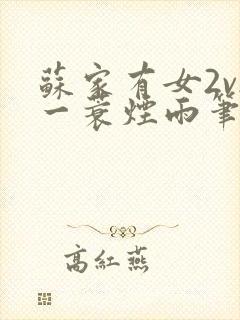 蘇家有女2v
一蓑煙雨筆
高紅燕